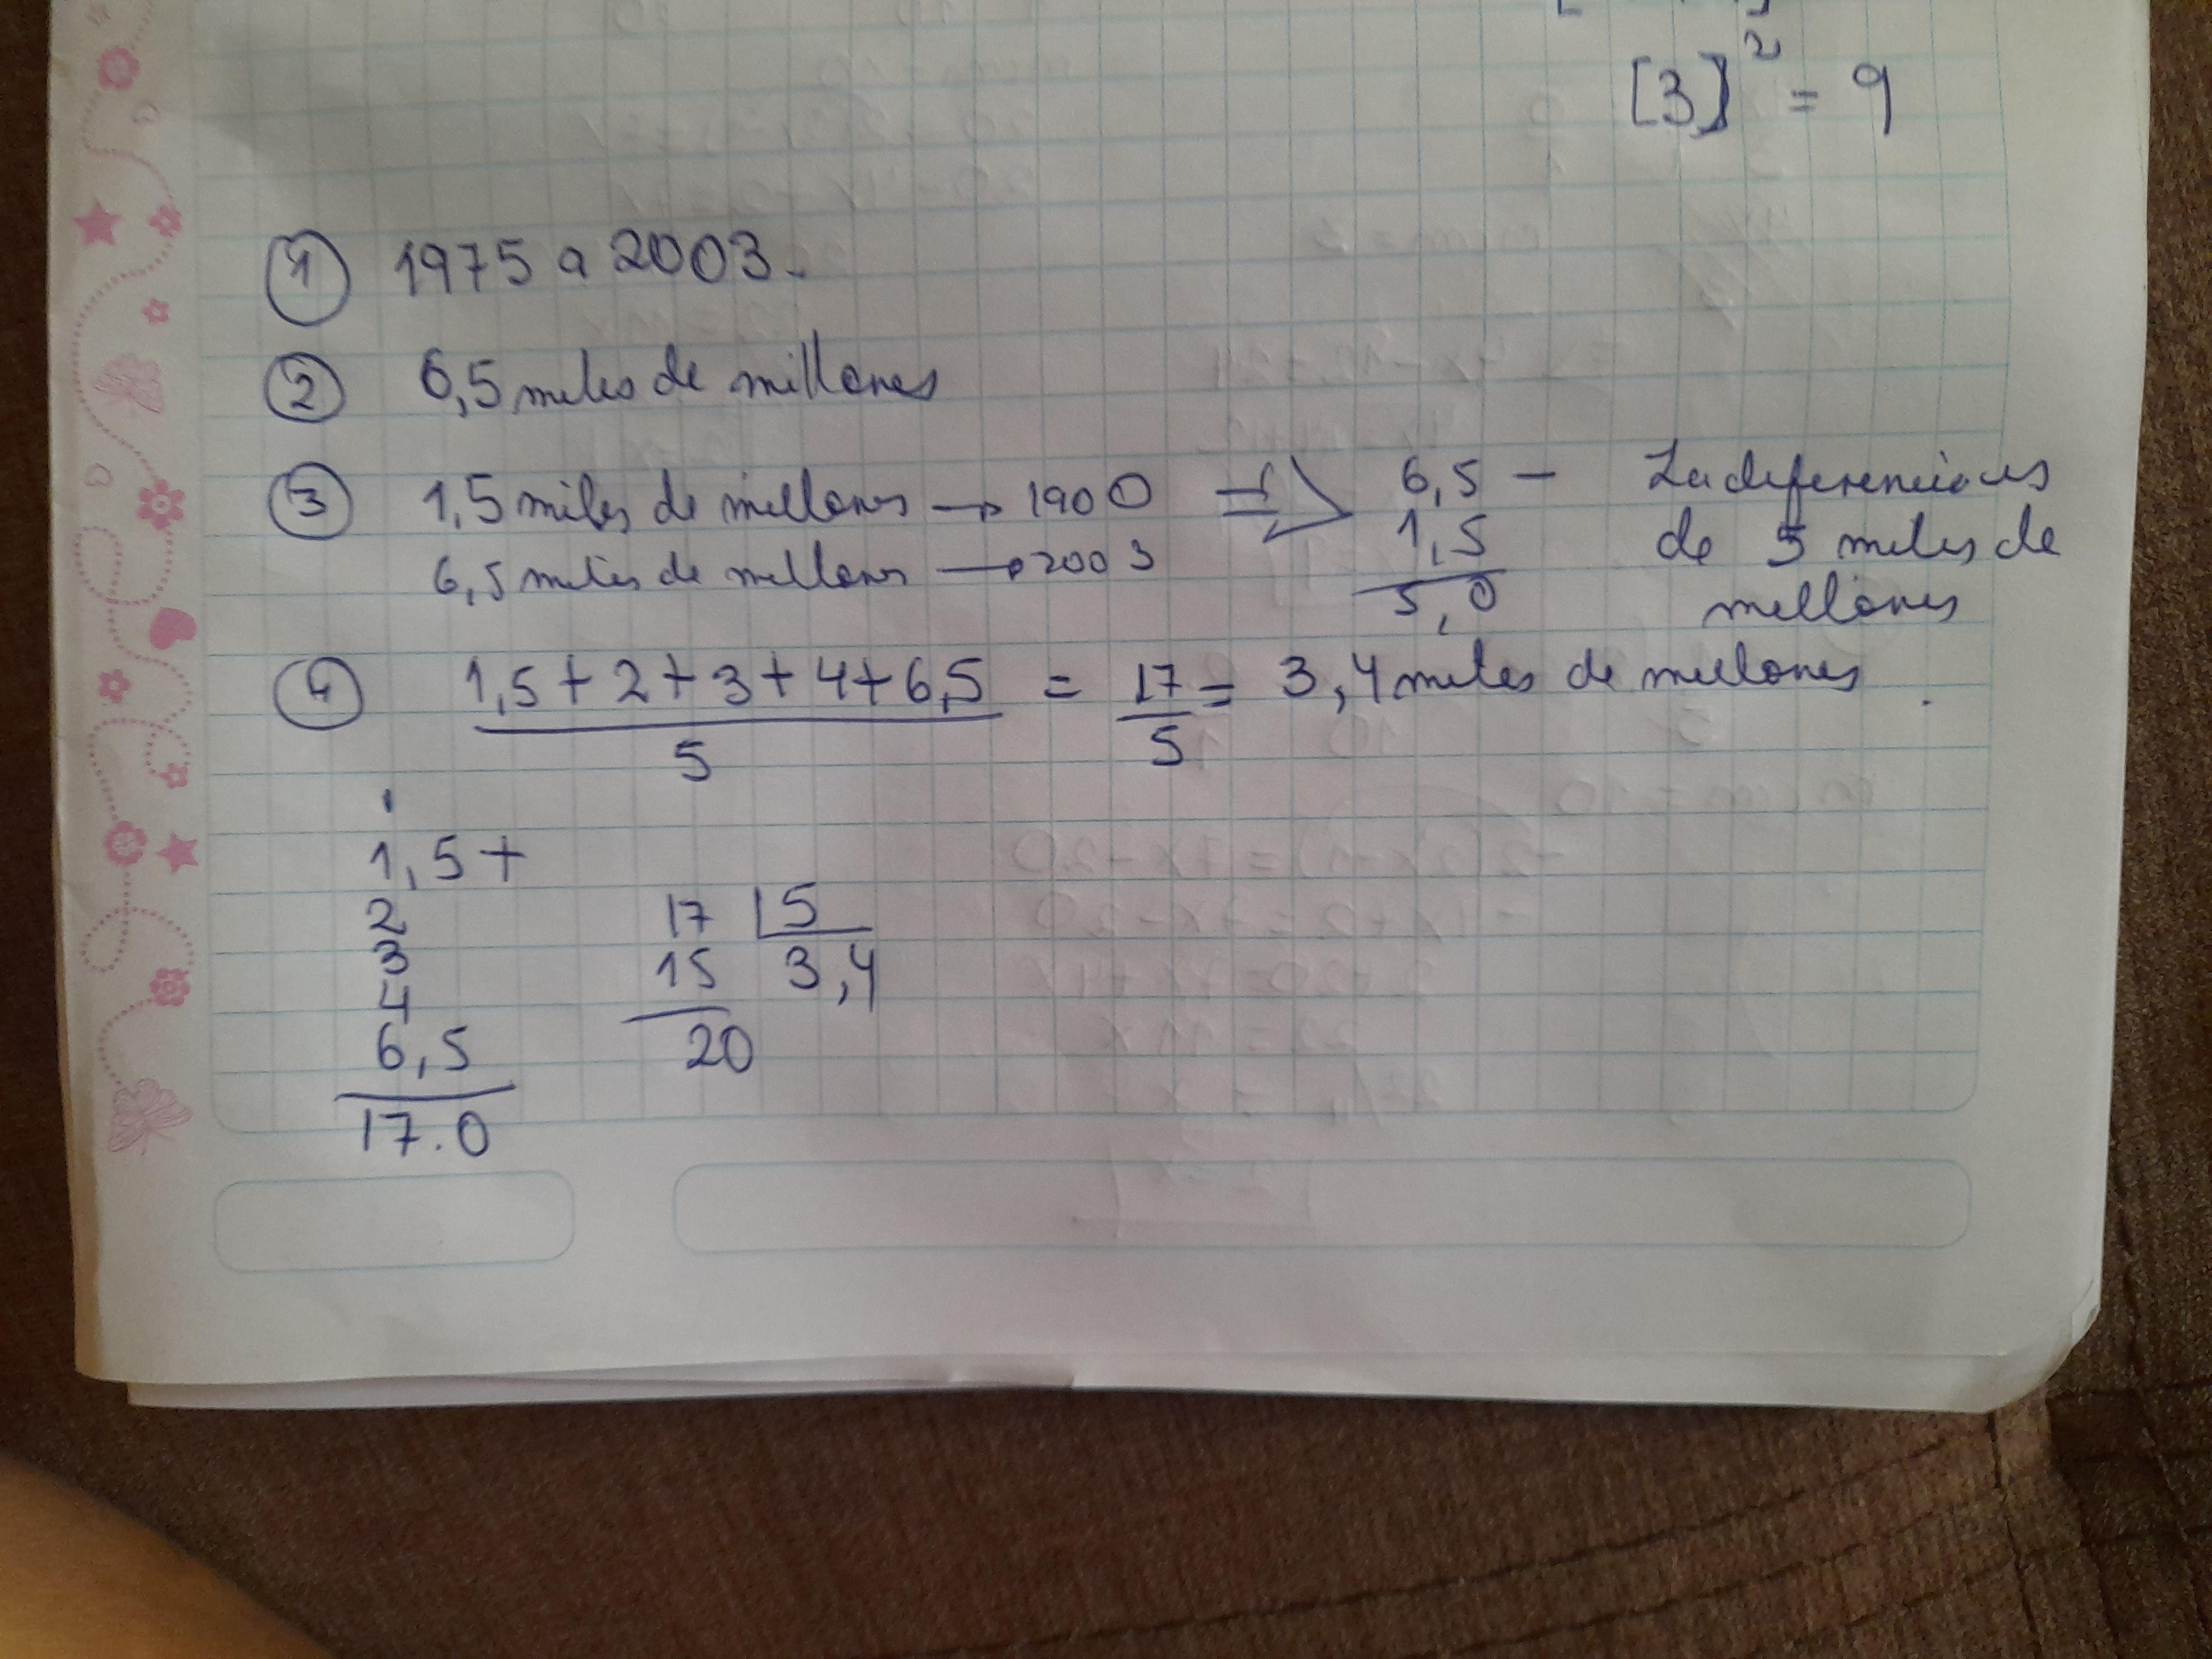 [3]² = 9
① 1975 a 2003.
② 6,5 miles de millones
③ 1,5 miles de millones → 1900 ⇒ 6,5 - La diferencia es
6,5 miles de millones → 2003 1,5 de 5 miles de
5,0 millones
④ 1,5+2+3+4+6,5 = 17 = 3,4 miles de millones.
5 5
1,5+
2 17 |5
3 15 3,4
4
6,5 20
17.0